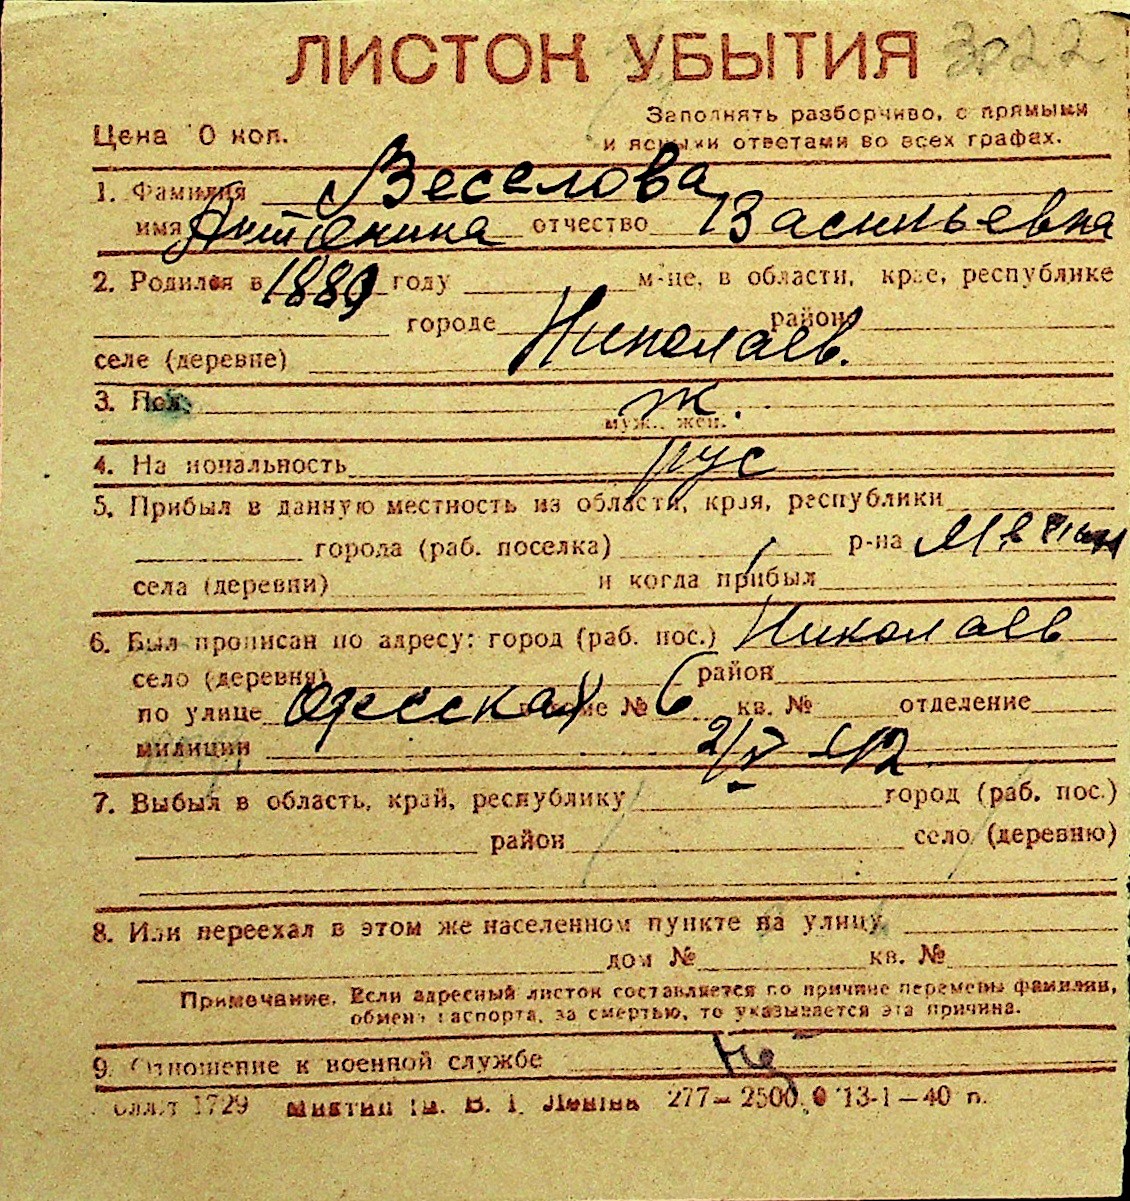 ЛИСТОК УБЫТИЯ 3022
Заполнять разборчиво, с прямыми
Цена 10 коп. и ясными ответами во всех графах.
1. Фамилия Веселова
имя Антонина отчество Васильевна
2. Родился в 1889 году м-це, в области, крае, республике
городе Николаев. районе
селе (деревне)
3. Пол ж.
муж., жен.
4. Национальность рус
5. Прибыл в данную местность из области, края, республики
города (раб. поселка) р-на
села (деревни) и когда прибыл
6. Был прописан по адресу: город (раб. пос.) Николаев
село (деревня) район
по улице Одесская в доме № 6 кв. № отделение
милиции
7. Выбыл в область, край, республику город (раб. пос.)
район село (деревню)
8. Или переехал в этом же населенном пункте на улицу
дом № кв. №
Примечание. Если адресный листок составляется по причине перемены фамилии,
обмена паспорта, за смертью, то указывается эта причина.
9. Отношение к военной службе не
1729 им. В. І. Леніна 277–2500. 13-1–40 п.